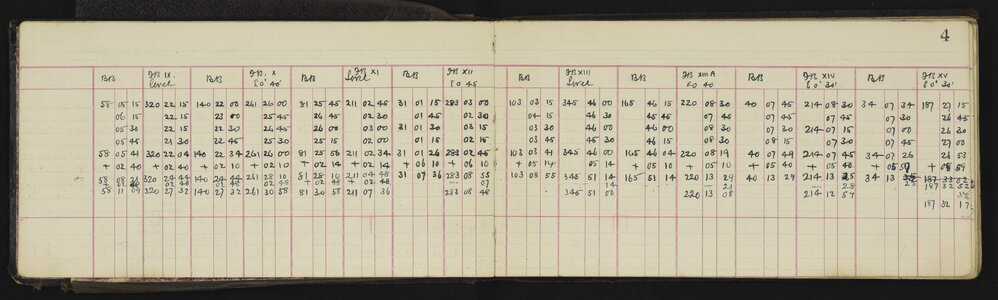 4
BB IB IX. BB IB. X BB IB XI BB IB XII BB IB XIII BB IB XIII A BB IB XIV BB IB XV
Level E0° 40' Level E0 45 Level E0 40 E0° 30' E0° 30'
58 05 15 320 22 15 140 22 00 261 26 00 81 25 45 211 02 45 31 01 15 283 03 00 103 03 15 345 46 00 165 46 15 220 08 30 40 07 45 214 08 30 34 07 34 187 27 15
06 15 22 15 23 00 25 45 26 45 02 30 01 45 02 30 04 15 46 30 45 45 07 45 07 30 07 45 07 30 26 45
05 30 22 15 22 30 26 45 26 00 03 00 01 30 02 15 03 30 46 00 46 00 08 30 07 30 214 07 15 07 00 26 30
05 45 21 30 22 45 25 30 25 45 02 00 01 15 02 15 03 30 45 30 46 15 08 30 08 15 07 30 07 45 27 00
58 05 41 320 22 04 140 22 34 261 26 00 81 25 56 211 02 34 31 01 26 283 02 45 103 03 41 345 46 00 165 46 04 220 08 19 40 07 49 214 07 45 34 07 26 26 53
+ 02 40 + 02 40 + 02 10 + 02 10 + 02 14 + 02 14 + 06 10 + 06 10 + 05 14 05 14 + 05 10 + 05 10 + 05 40 + 05 40
58 08 21 320 24 44 140 24 44 261 28 10 81 28 10 211 04 48 31 07 36 283 08 55 103 08 55 345 51 14 165 51 14 220 13 29 40 13 29 214 13 25 34 13
02 48 02 48 02 48 02 48 02 48 07 14 21 28 187 32 52
58 11 09 320 27 32 140 27 32 261 30 58 81 30 58 211 07 36 283 08 48 345 51 00 220 13 08 214 12 57
187 32 17